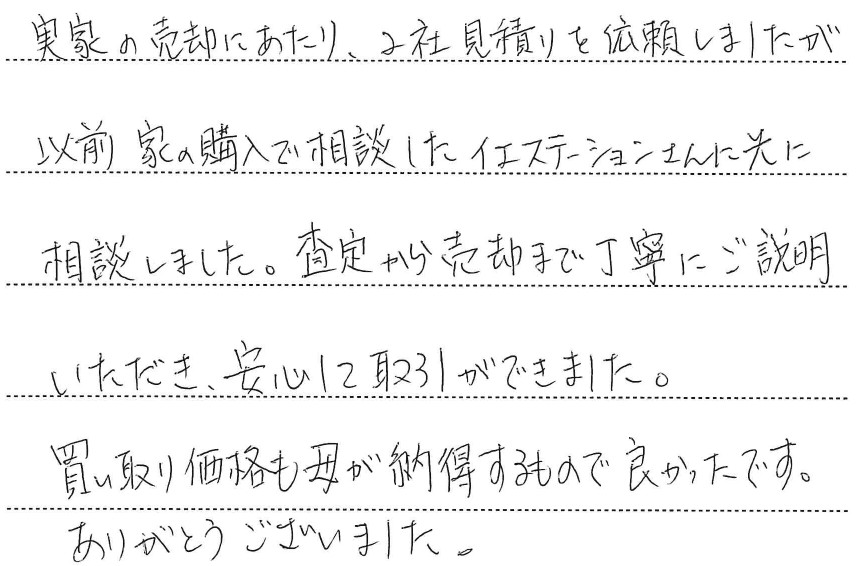 実家の売却にあたり、2社見積りを依頼しましたが
以前家の購入で相談したイエステーションさんに先に
相談しました。査定から売却まで丁寧にご説明
いただき、安心して取引ができました。
買い取り価格も母が納得するもので良かったです。
ありがとうございました。